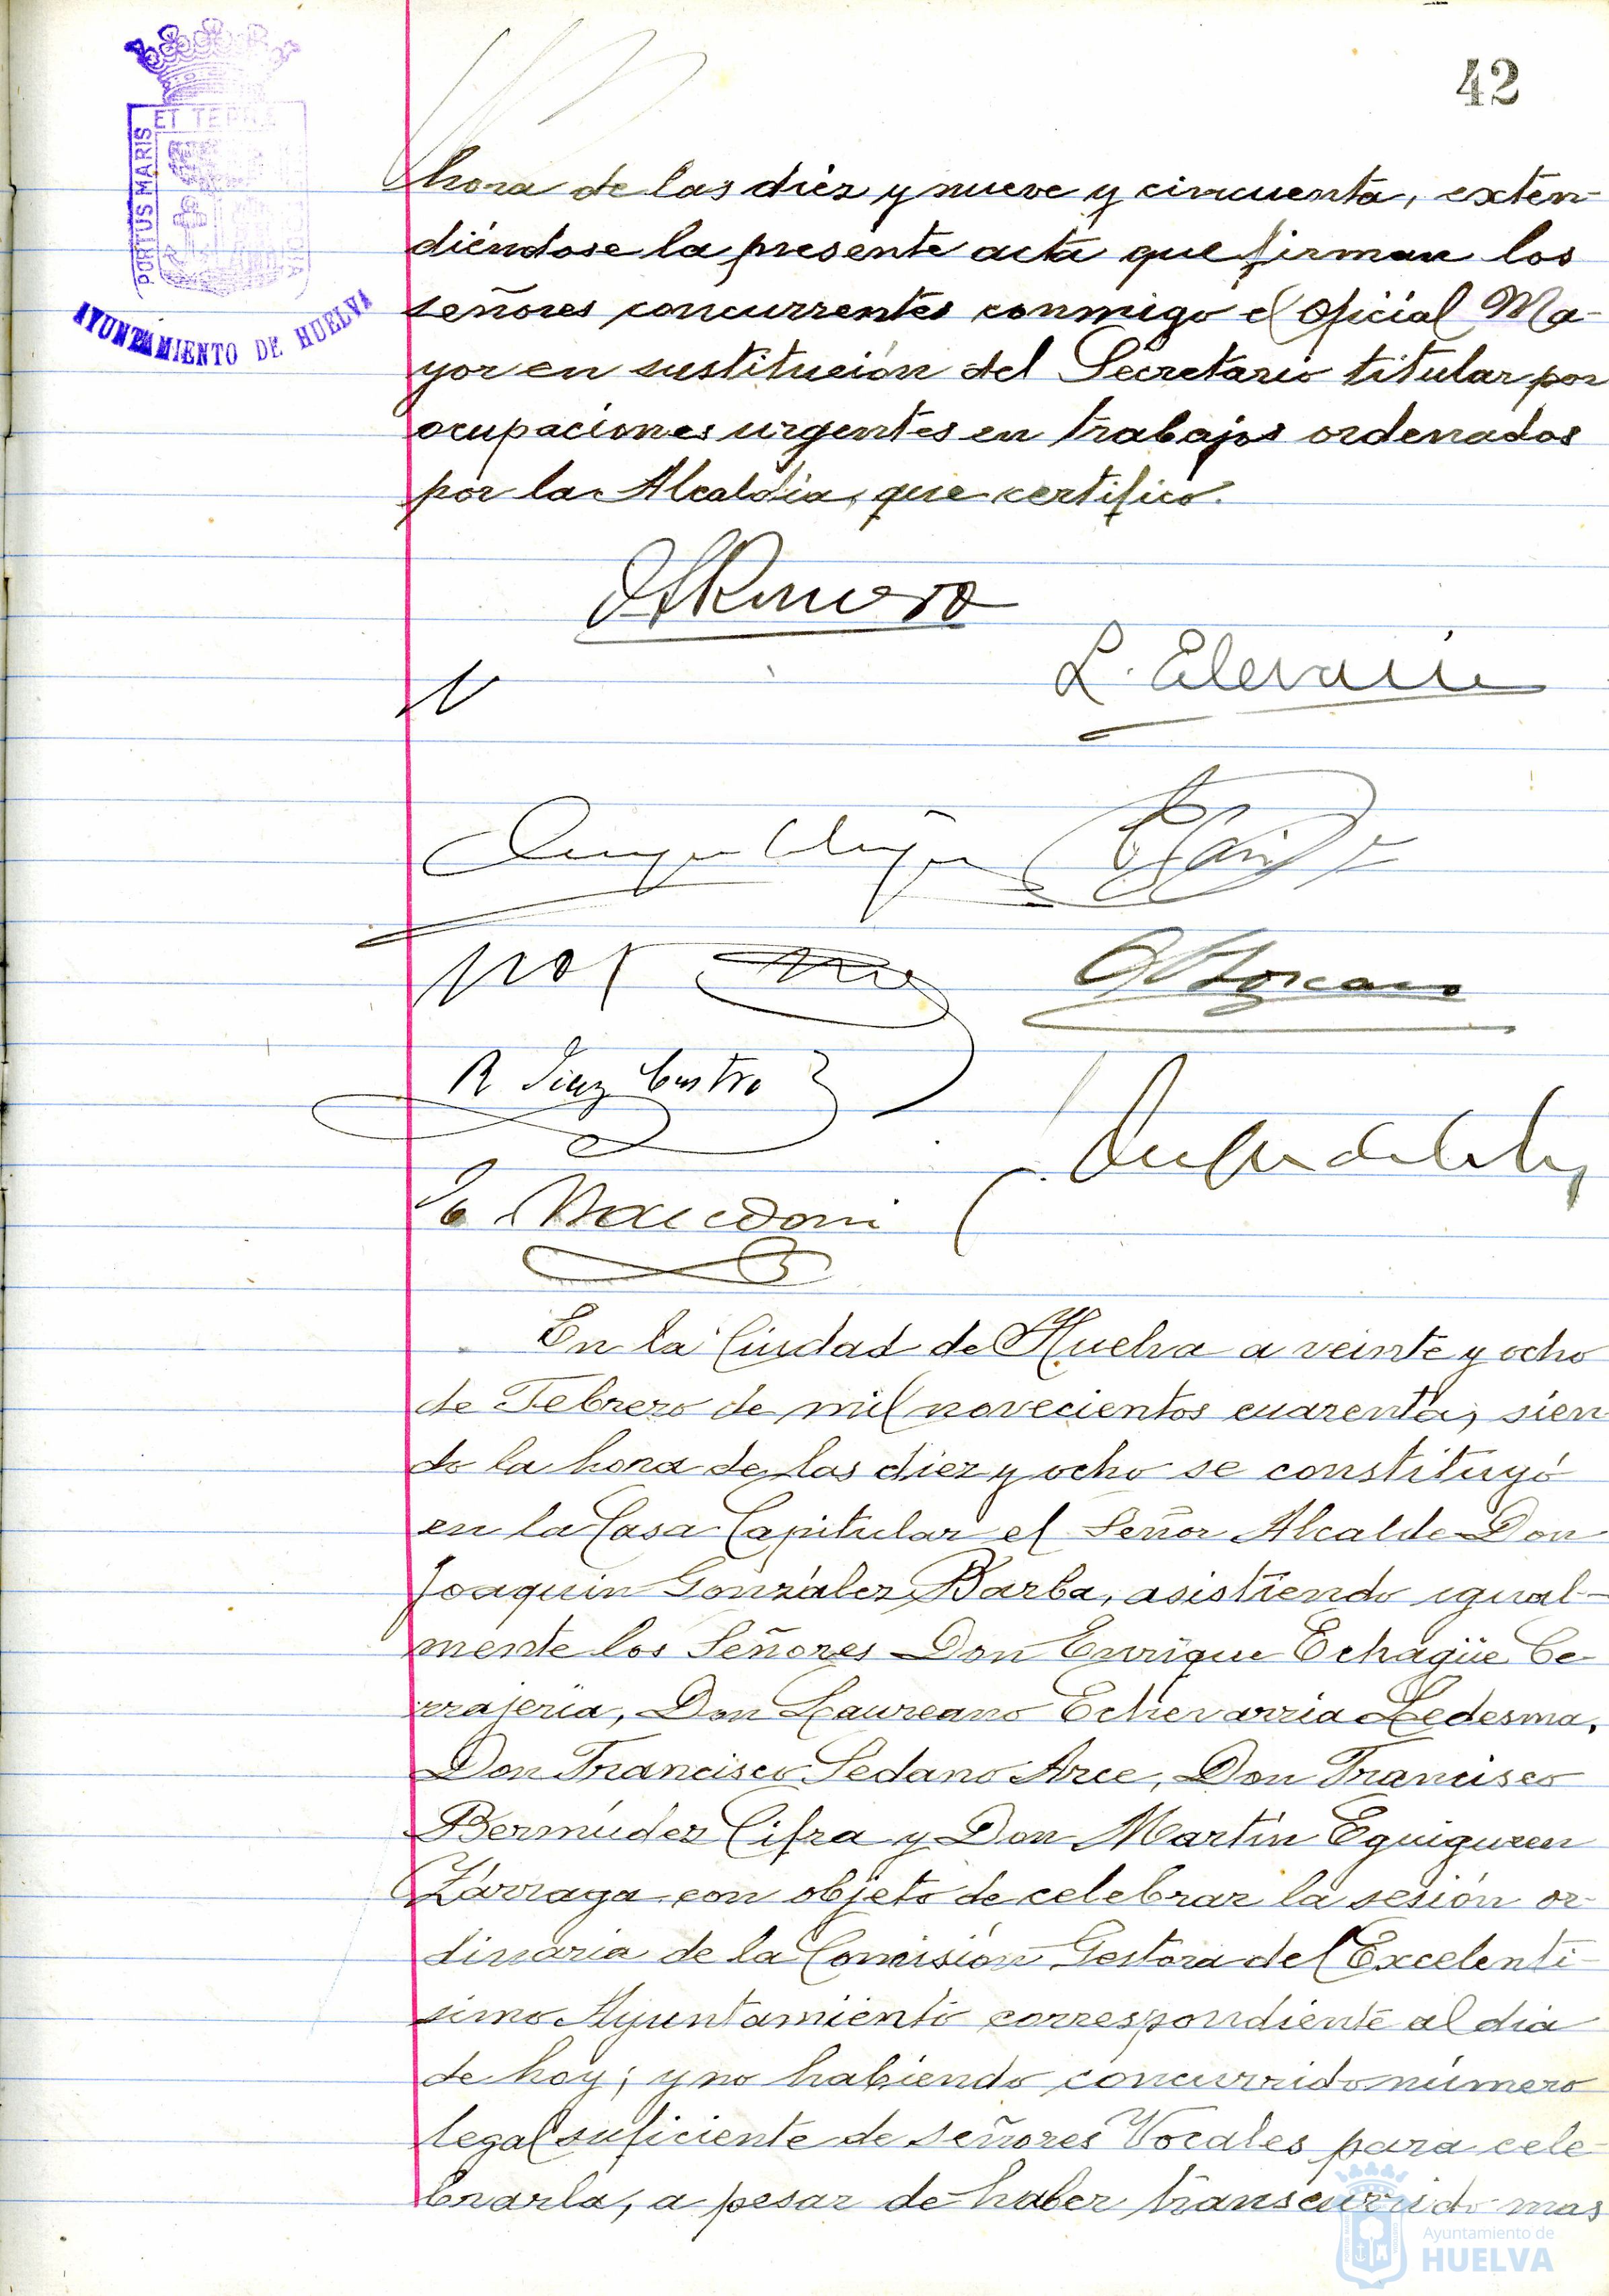 42
ET TERRE
PORTUS MARIS
AYUNTAMIENTO DE HUELVA
hora de las diez y nueve y cincuenta, exten-
diéndose la presente acta que firman los
señores concurrentes conmigo el Oficial Ma-
yor en sustitución del Secretario titular por
ocupaciones urgentes en trabajos ordenados
por la Alcaldía, que certifico.
Romero
L.
R Diaz Castro
En la Ciudad de Huelva a veinte y ocho
de Febrero de mil novecientos cuarenta, sien
do la hora de las diez y ocho se constituyó
en la Casa Capitular el Señor Alcalde Don
Joaquín González Barba, asistiendo igual-
mente los Señores Don Enrique Echagüe Ce-
rrajería, Don Laureano Echevarria Ledesma,
Don Francisco Sedano Arce, Don Francisco
Bermúdez Cifra y Don Martín Eguiguren
Zárraga con objeto de celebrar la sesión or-
dinaria de la Comisión Gestora del Excelentí-
simo Ayuntamiento correspondiente al dia
de hoy; y no habiendo concurrido número
legal suficiente de señores Vocales para cele-
brarla, a pesar de haber transcurrido mas
Ayuntamiento de
HUELVA